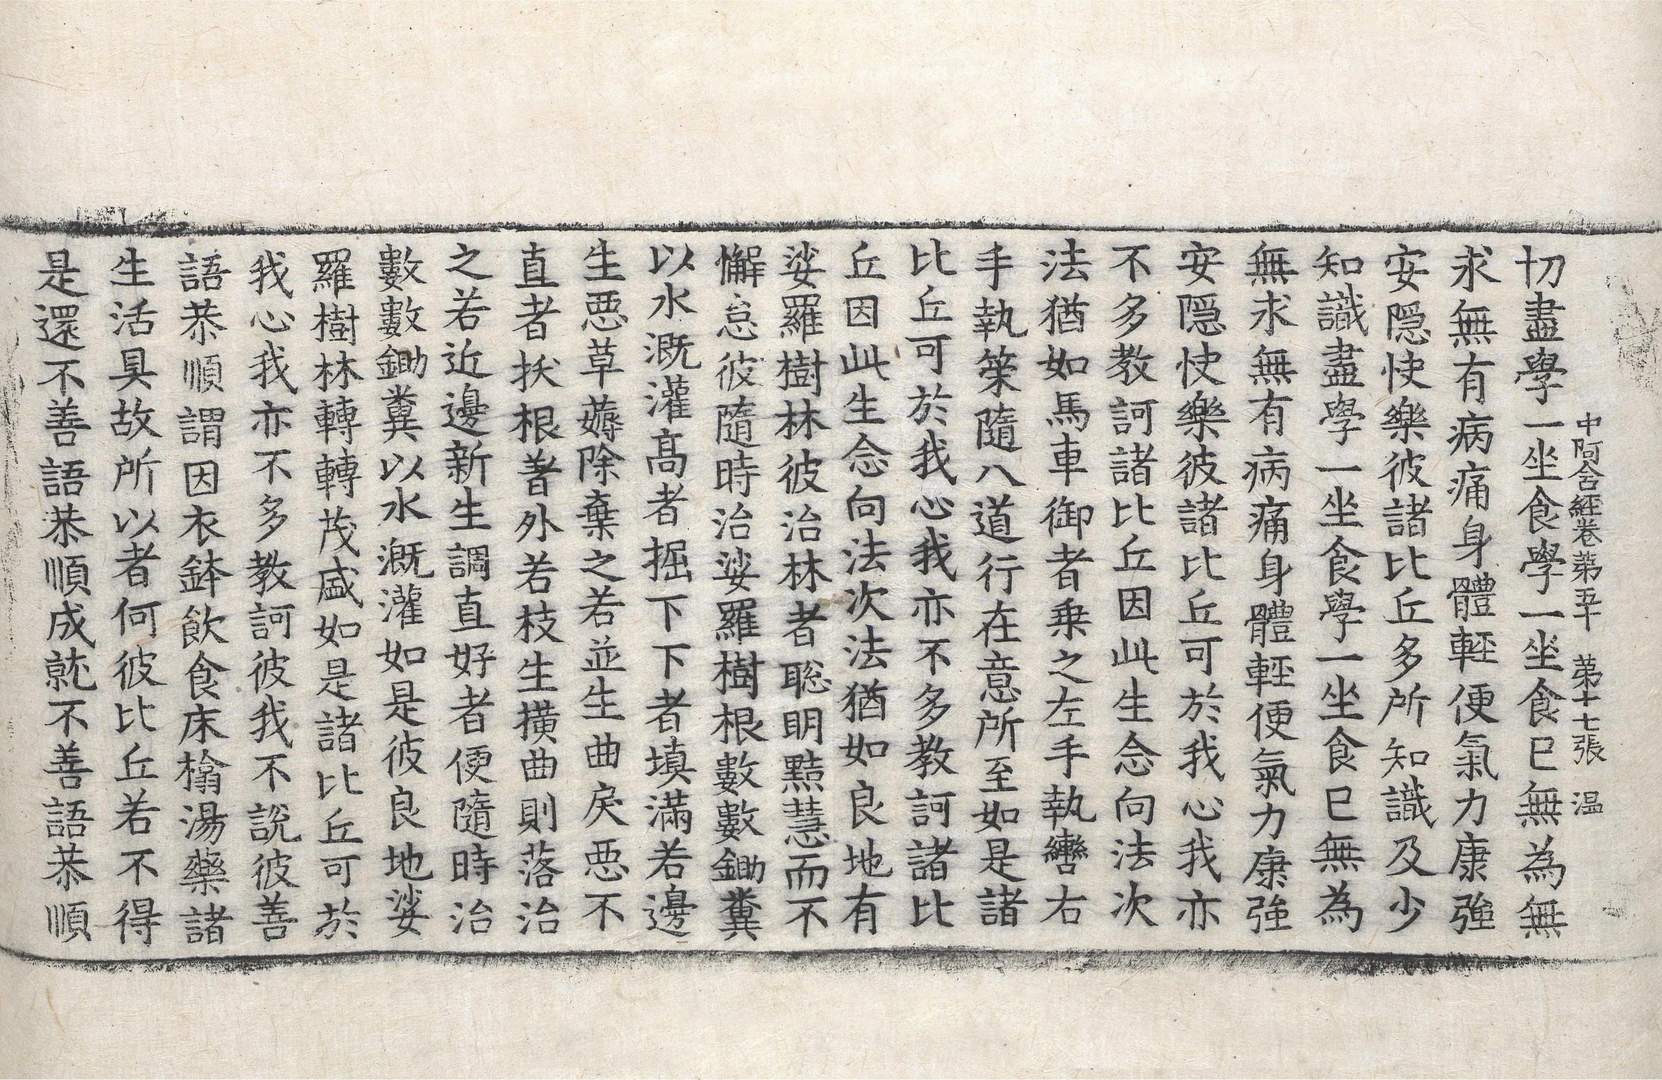 中阿含經卷第五十　第十七張　温
切盡學一坐食學一坐食已無為無
求無有病痛身體輕便氣力康強
安隠快樂彼諸比丘多所知識及少
知識盡學一坐食學一坐食已無為
無求無有病痛身體輕便氣力康強
安隠快樂彼諸比丘可於我心我亦
不多教訶諸比丘因此生念向法次
法猶如馬車御者乗之左手執轡右
手執策隨八道行在意所至如是諸
比丘可於我心我亦不多教訶諸比
丘因此生念向法次法猶如良地有
娑羅樹林彼治林者聡明黠慧而不
懈怠彼隨時治娑羅樹根數數鋤糞
以水溉灌髙者掘下下者填滿若邊
生悪草薅除棄之若並生曲戾悪不
直者拔根著外若枝生横曲則落治
之若近邊新生調直好者便隨時治
數數鋤糞以水溉灌如是彼良地娑
羅樹林轉轉茂盛如是諸比丘可於
我心我亦不多教訶彼我不說彼善
語恭順謂因衣鉢飲食床㯓湯藥諸
生活具故所以者何彼比丘若不得
是還不善語恭順成就不善語恭順